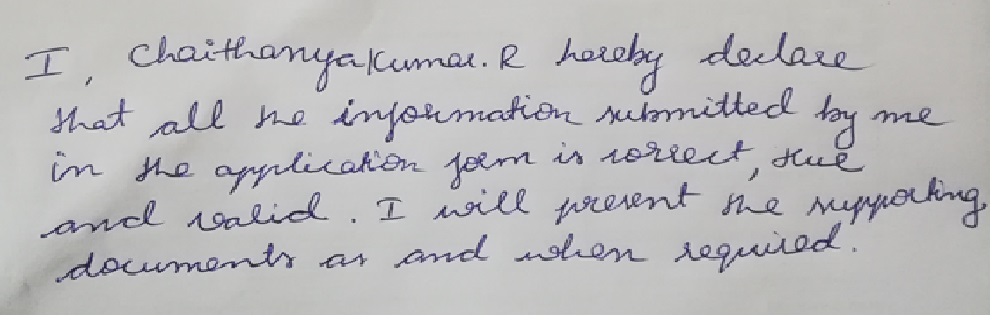 I, Chaithanyakumar. R hereby declare
that all the information submitted by me
in the application form is correct, true
and valid. I will present the supporting
documents as and when required.